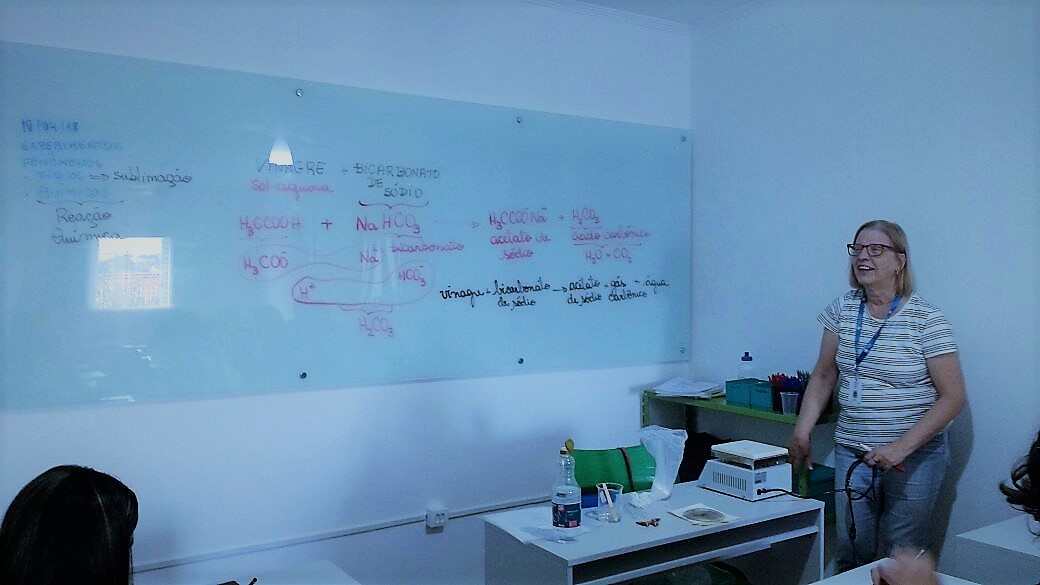 18/04/18
EXPERIMENTOS
FENÔMENOS
• FÍSICOS => sublimação
• QUÍMICOS
Reação
Química
VINAGRE + BICARBONATO
DE
SÓDIO
sol aquosa
H₃CCOOH + NaHCO₃ → H₃CCOONa + H₂CO₃
bicarbonato
acetato de
sódio
ácido carbônico
H₂O + CO₂
H₃CCOO⁻
Na⁺
HCO₃⁻
H⁺
H₂CO₃
vinagre + bicarbonato → acetato + gás + água
de sódio de sódio carbônico